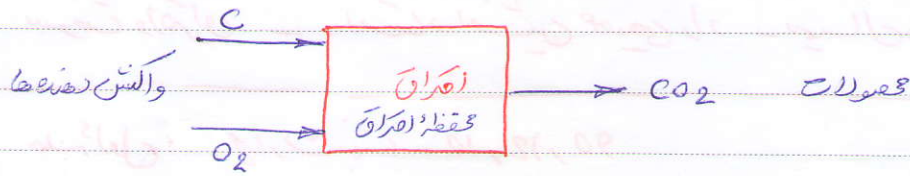 C
واکنش دهنده‌ها
احتراق
محفظهٔ احتراق
CO2
محصولات
O2